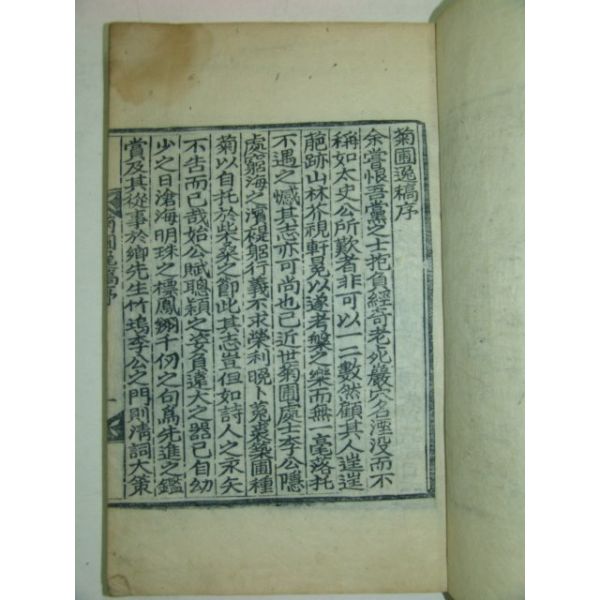 菊圃逸稿序
余嘗恨吾黨之士抱負經奇老死巖穴名湮没而不
稱如太史公所歎者非可以一二數然顧其人逞逞
葩跡山林芥視軒冕以遂考槃之樂而無一毫落托
不遇之憾其志亦可尚也已近世菊圃處士李公隱
處窮海之濱禔躬行義不求榮利晩卜菟裘築圃種
菊以自托於柴桑之節此其志豈但如詩人之永矢
不告而已哉始公賦聰穎之姿負遠大之器已自幼
少之日滄海明珠之標鳳翔千仞之句爲先進之鑑
賞及其從事於鄉先生竹塢李公之門則淸詞大策
菊圃逸稿序
一